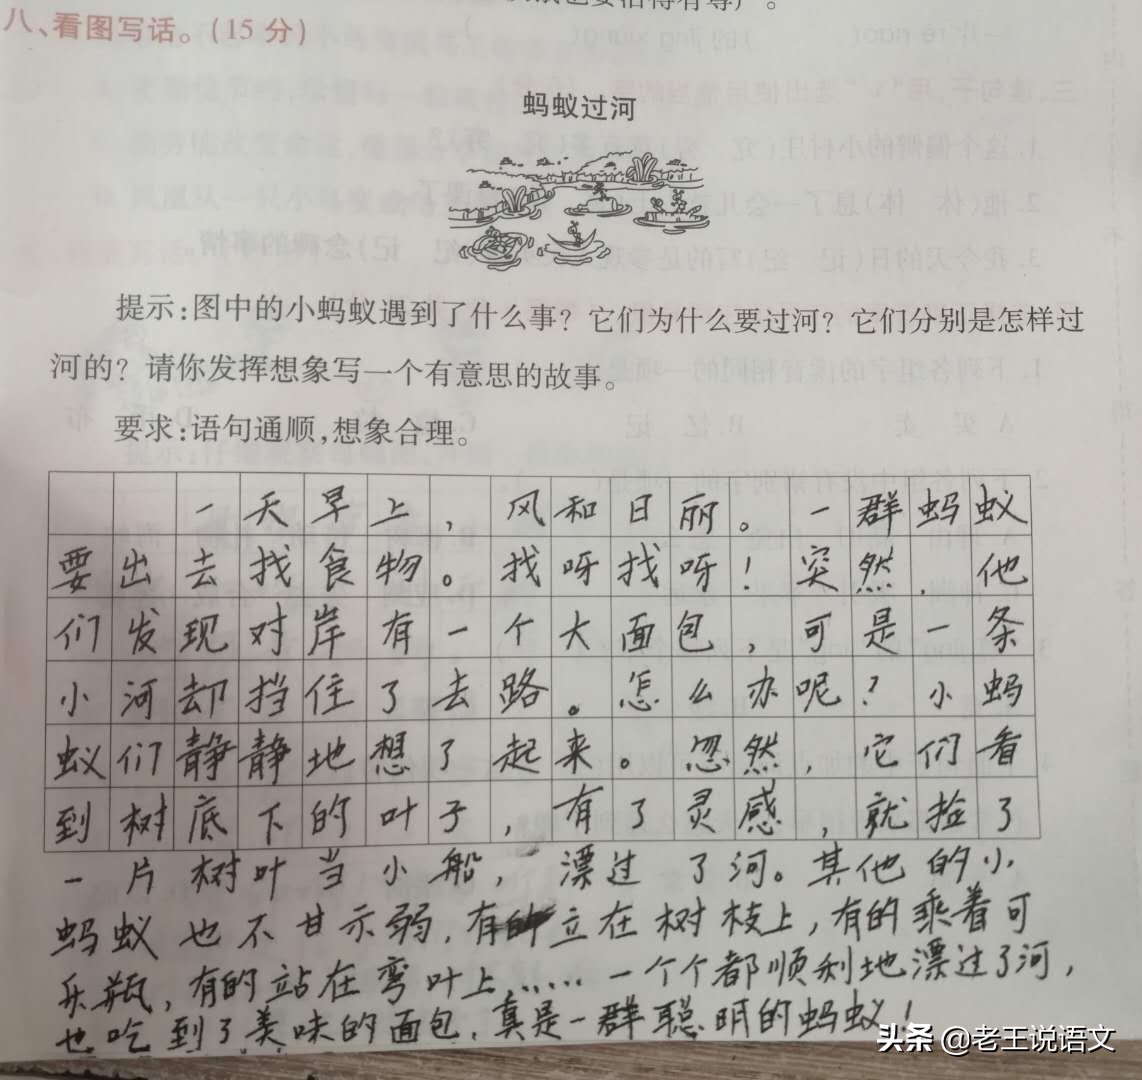 八、看图写话。(15分)
蚂蚁过河
提示:图中的小蚂蚁遇到了什么事?它们为什么要过河?它们分别是怎样过
河的?请你发挥想象写一个有意思的故事。
要求:语句通顺,想象合理。
一天早上,风和日丽。一群蚂蚁
要出去找食物。找呀找呀!突然,他
们发现对岸有一个大面包,可是一条
小河却挡住了去路。怎么办呢?小蚂
蚁们静静地想了起来。忽然,它们看
到树底下的叶子,有了灵感,就捡了
一片树叶当小船,漂过了河。其他的小
蚂蚁也不甘示弱,有的立在树枝上,有的乘着可
乐瓶,有的站在弯叶上……一个个都顺利地漂过了河,
也吃到了美味的面包,真是一群聪明的蚂蚁!
头条 @老王说语文